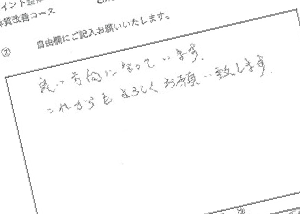 イント整
体質改善コース
② 自由欄にご記入お願いいたします。
良い方向に向っています。
これからもよろしくお願い致します。